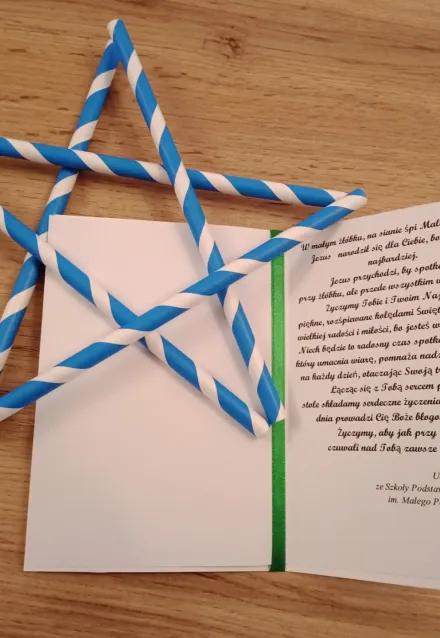 W małym żłóbku, na sianie śpi
Jezus narodził się dla Ciebie, bo
najbardziej.
Jezus przychodzi, by
przy żłóbku, ale przede wszystkim w
Życzymy Tobie i Twoim
piękne, rozśpiewane kolędami
wielkiej radości i miłości, bo jesteś
Niech będzie to radosny czas
który umacnia wiarę, pomnaża
na każdy dzień, otaczając Swoją
Łącząc się z Tobą sercem
stole składamy serdeczne
dnia prowadzi Cię Boże
Życzymy, aby jak przy
czuwali nad Tobą zawsze
ze Szkoły
im. Małego